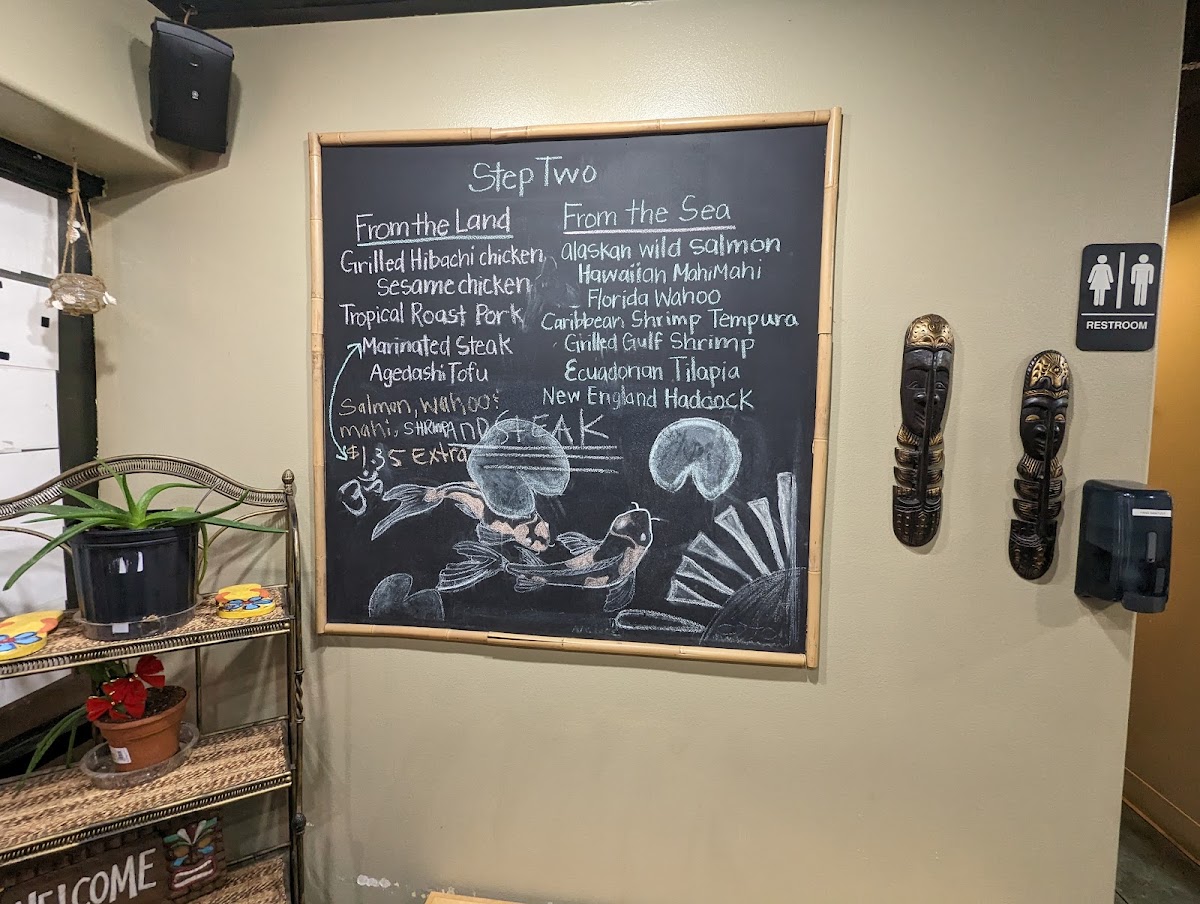 Step Two
From the Land
Grilled Hibachi chicken
sesame chicken
Tropical Roast Pork
Marinated Steak
Agedashi Tofu
Salmon, wahoo,
mahi, SHRIMP AND STEAK
$1.35 Extra
From the Sea
alaskan wild salmon
Hawaiian MahiMahi
Florida Wahoo
Caribbean Shrimp Tempura
Grilled Gulf Shrimp
Ecuadorian Tilapia
New England Hadcock
RESTROOM
WELCOME